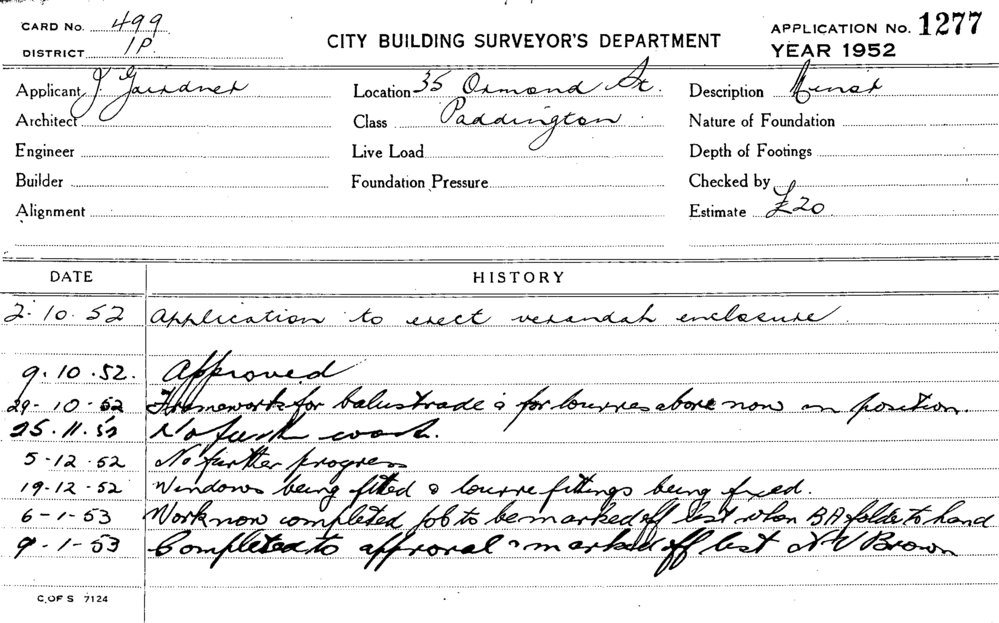 CARD No. 499
DISTRICT 1P.
CITY BUILDING SURVEYOR'S DEPARTMENT
APPLICATION No. 1277
YEAR 1952
Applicant J. Gairdner
Location 35 Ormond St.
Description
Architect
Class Paddington
Nature of Foundation
Engineer
Live Load
Depth of Footings
Builder
Foundation Pressure
Checked by
Alignment
Estimate £20
DATE HISTORY
2.10.52 Application to erect verandah enclosure
9.10.52. Approved
29-10-52 Framework for balustrade & for louvres above now in position.
25.11.52 No work.
5-12.52 No further progress
19-12-52 Windows being fitted & louvre fittings being fixed.
6-1-53 Work now completed job to be marked off list when BA folder to hand
9-1-53 Completed to approval & marked off list N V Brown
C. OF S 7124